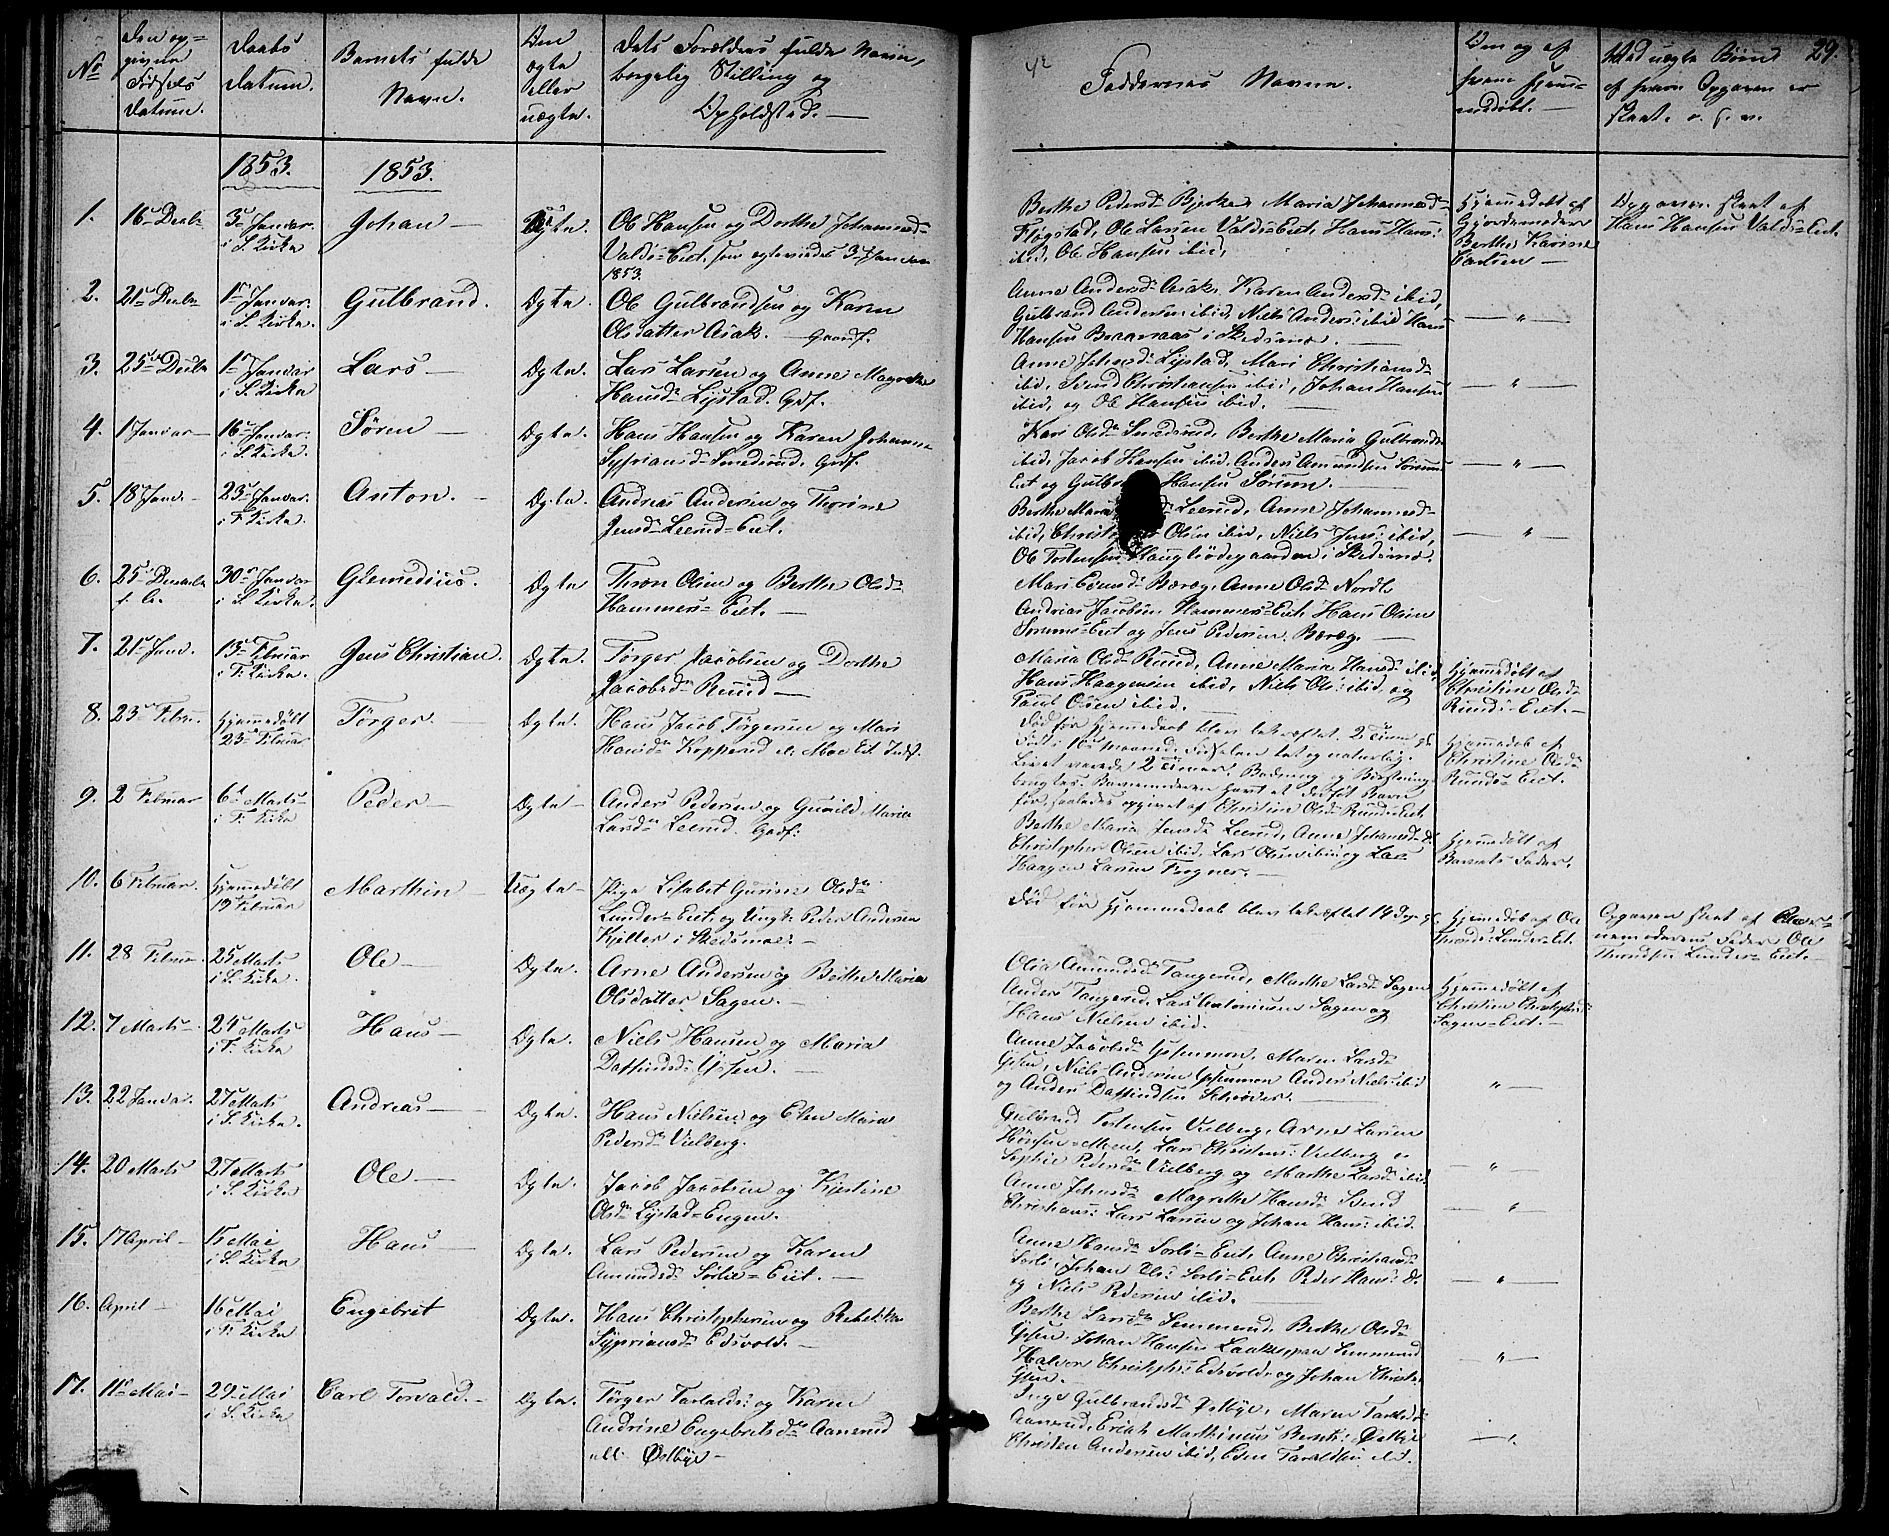 No
Den op=
givne
Fødsels
Datum.
Daabs
Datum.
Barnets fulde
Navn.
Om
ægte
eller
uægte.
Dets Forældres fulde Navne,
borgerlig Stilling og
Opholdsted. —
Faddernes Navne.
Om og af
hvem hjem-
medøbt.
Ved uægte Børn
af hvem Opgaven er
skeet. o. s. v.
29.
1853.
1853.
1.
16 Decbr
3 Januar.
i S. Kirke
Johan —
Ægte.
Ole Hansen og Dorthe Johannesd.
Valds-Eiet. som egteviedes 3 Januar
1853.
Berthe Pedersd. Bjerke, Maria Johannesd.
Ole Larsen Valds-Eiet, Hans Hans:
ibid, Ole Hansen ibid,
Hjemmedøbt af
Gjordemoder
Berthe Karine
Carlsen —
Opgaven skeet af
Hans Hansen Valds-Eiet.
2.
21 Decbr
1 Januar.
i S. Kirke.
Gulbrand.
Ægte.
Ole Gulbrandsen og Karen
Olsdatter Asak. — Gaardf.
Anne Andersd. Asak, Karen Andersd. ibid,
Gulbrand Andersen ibid, Niels Anders: ibid Hans
Hansen Braaraas i Skedsmo. —
— " —
3.
25 Decbr
1 Januar
i S. Kirke
Lars —
Ægte.
Lars Larsen og Anne Magrethe
Hansd. Lystad. Grdf.
Anne Johnsd. Lystad, Mari Christiansd.
ibid, Svend Christiansen ibid, Johan Hansen
ibid, og Ole Hansen ibid. —
— " —
4.
1 Januar —
16 Januar.
i S. Kirke.
Søren —
Ægte.
Hans Hansen og Karen Johanne
Sypriansd. Smedsrud. Grdf.
Kari Olsd. Smedsrud, Berthe Maria Gulbrands
ibid, Jacob Hansen ibid, Anders Amundsen Sørum
Eiet og Hansen Sørum. —
— " —
5.
18 Jan. —
23 Januar.
i F. Kirke.
Anton. —
Ægte.
Andreas Andersen og Thorine
Jensd. Leerud-Eiet.
Berthe Maria Leerud, Anne Johannesd.
ibid, Olsen ibid, Niels Jens: ibid,
Ole Torstensen i Skedsmo.
— " —
6.
25 Decembr
f. A.
30 Januar
i S. Kirke.
Ægte
Thron Olsen og Berthe Olsd.
Hammers-Eiet. —
Mari Evensd. Bæreg, Anne Olsd. Nordli
Andreas Jacobsen Hammers-Eiet, Hans Olsen
Sørums-Eiet og Jens Pedersen Bæreg. —
7.
21 Jan.
13 Februar
i F. Kirke.
Jens Christian.
Ægte.
Tørger Jacobsen og Dorthe
Jacobsd. Ruud —
Maria Olsd. Ruud, Anne Maria Hansd. ibid
Hans Haagensen ibid, Niels Ols: ibid og
Paul Olsen ibid. —
Hjemmedøbt af
Christine Olsd.
Ruuds-Eiet. —
8.
23 Februar.
Hjemmedøbt
23 Februar
Tørger. —
Ægte.
Hans Jacob Tørgersen og Mari
Hansd. Kopperud
Død før Hjemmedaab blev bekræftet, 2 Timer gl.
Født i 10 Maaned, Fødselen let og naturlig.
Livet varede 2 Timer. Badning og Børstning
brugtes. Barnemoderen havt et dødfødt Barn
før, saaledes opgivet af Christine Olsd. Ruuds-Eiet
Hjemmedøb af
Christine Olsd.
Ruuds-Eiet.
9.
2 Februar
6 Marts
i F. Kirke
Peder —
Ægte —
Anders Pedersen og Gunild Maria
Larsd. Leerud. Grdf.
Berthe Maria Jensd. Leerud, Anne Johansd. do.
Christopher Olsen ibid, Lars Olsen ibid og Lars
Haagen Larsen Frogner. —
Hjemmedøbt af
Barnets Fader.
10.
6 Februar.
Hjemmedøbt
19 Februar
Marthin —
Uægte —
Pige Lisabet Gurine Olsd.
Lunder-Eiet, og Ungk. Peder Andersen
Kjeller i Skedsmoe. —
Død før Hjemmedaab blev bekræftet 14 Dage gl.
Hjemmedøb af Ole
Thronds: Lunder-Eiet.
Opgaven skeet af Bar-
nemoderens Fader Ole
Throndsen Lunder-Eiet. —
11.
28 Februar
25 Marts
i S. Kirke.
Ole —
Ægte.
Arne Andersen og Berthe Maria
Olsdatter Sagen. —
Olia Amundsd. Tangerud, Marthe Larsd. Sagen
Anders Tangerud, Lars Antonisen Sagen og
Hans Nielsen ibid.
Hjemmedøbt af
Christian Christophs:
Sagen-Eiet. —
12.
7 Marts —
24 Marts
i F. Kirke
Hans —
Ægte.
Niels Hansen og Maria
Daffindsd. Ysen. —
Anne Jacobsd. Maren Larsd.
Ysen, Niels Andersen Anders Niels: ibid
og Anders Daffindsen Schrøder. —
" —
13.
22 Januar.
27 Marts
i S. Kirke.
Andreas —
Ægte.
Hans Nielsen og Elen Maria
Pedersd. Vielberg.
Gulbrand Torstensen Vielberg, Arne Larsen
Lars Christens: Vielberg
Sophie Pedersd. Vielberg og Marthe Larsd. ibid
— " —
14.
20 Marts
27 Marts
i S. Kirke
Ole —
Ægte.
Jacob Jacobsen og Kjerstine
Olsd. Lystad-Engen.
Anne Johnsd. Magrethe Hansd. Svend
Christians: Lars Larsen og Johan Hans: ibid.
— " —
15.
17 April —
15 Mai
i S. Kirke
Hans —
Ægte.
Lars Pedersen og Karen
Amundsd. Sørlie-Eiet. —
Anne Hansd. Sørli-Eiet, Anne Christiansd.
Sørli, Johan Sørli-Eiet, Peder Hans: do.
og Niels Pedersen ibid. —
— " —
16.
April —
16 Mai
i F. Kirke
Engebret
Ægte.
Hans Christophersen og Rebekka
Sypriansd. Edsvold. —
Berthe Larsd. Berthe Olsd.
Ysen, Johan Hansen
Halvor Christophs: Edsvold og Johan Christ:
Ysen. —
" —
17.
11 Mai —
29 Mai
i S. Kirke
Carl Torvald. —
Ægte.
Tørger Taralds: og Karen
Andrine Engebretsd. Aanerud
Østbye —
Inge Gulbrandsd. Østbye, Maren
Aanerud, Erich Marthinius Bernts: Østbye
Christen Andersen ibid, Even Taraldsen ibid.
— " —